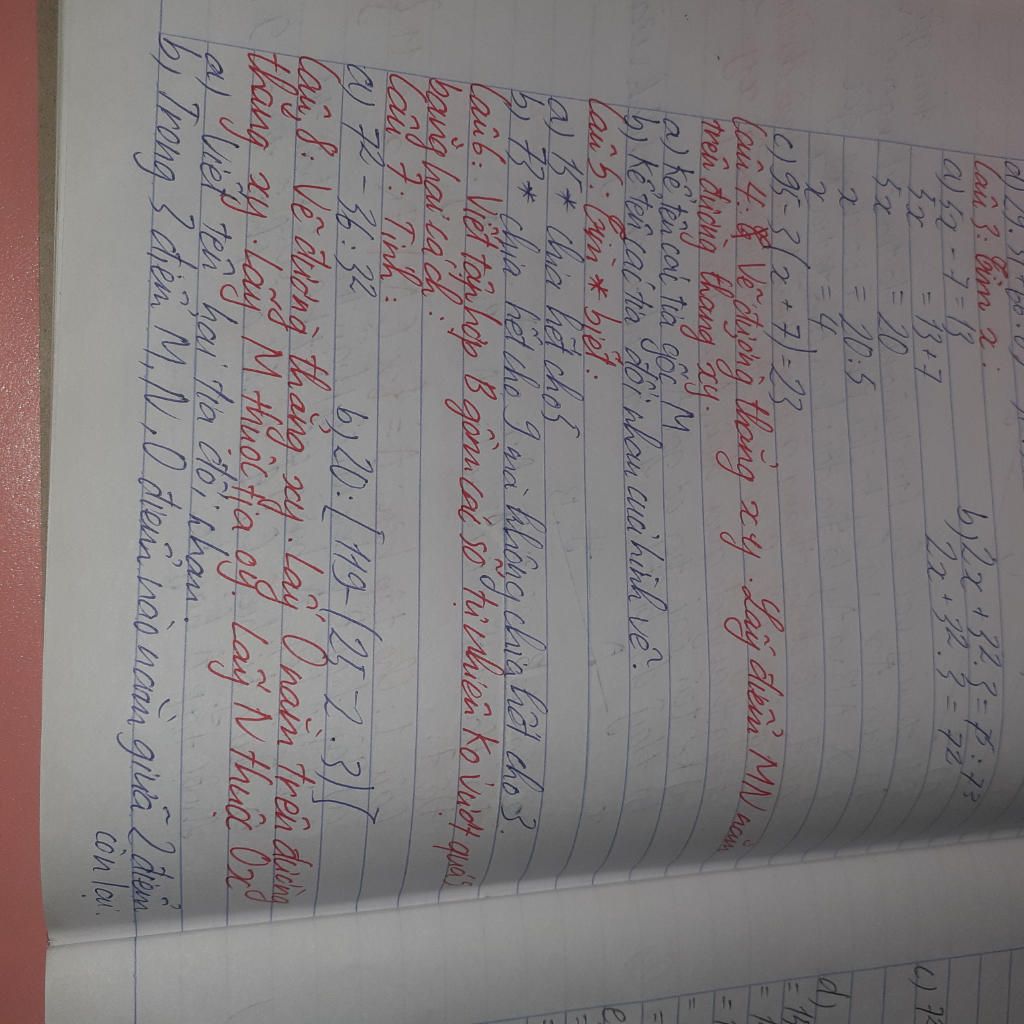 Câu 3: Tìm x:
a) 5x - 7 = 13
b) 2x + 32.3 = 75:73
5x = 13 + 7
2x + 32.3 = 72
5x = 20
x = 20:5
x = 4
c) 95 - 3(x + 7) = 23
Câu 4: Vẽ đường thẳng xy. Lấy điểm MN nằm
trên đường thẳng xy.
a) Kể tên các tia gốc M
b) Kể tên các tia đối nhau của hình vẽ.
Câu 5: Tìm * biết:
a) 15* chia hết cho 5
b) 73* chia hết cho 9 mà không chia hết cho 3.
Câu 6: Viết tập hợp B gồm các số tự nhiên ko vượt quá 5
bằng hai cách:
Câu 7: Tính:
a) 72 - 36:32
b) 20:[119-(25-2.3)]
Câu 8: Vẽ đường thẳng xy. Lấy O nằm trên đường
thẳng xy. Lấy M thuộc tia Oy. Lấy N thuộc Ox
a) Viết tên hai tia đối nhau.
b) Trong 3 điểm M, N, O điểm nào nằm giữa 2 điểm
còn lại.
c) 72
d)